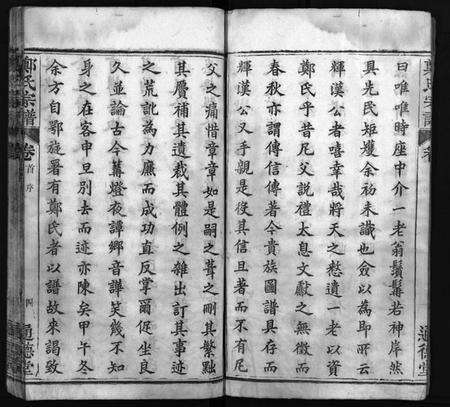 曰唯唯時座中介一老翁鬚髯若神岸然
具先民矩矱余初未識也僉以為即所云
輝漢公者嘻幸哉將天之憖遺一老以資
鄭氏乎昔尼父說禮太息文獻之無徵而
春秋亦謂傳信傳著今貴族圖譜具存而
輝漢公又手親是役其信且著而不有尼
父之痛惜章章如是嗣之葺之刪其繁黜
其贗補其遺裁其體例之雜出訂其事迹
之荒訛為力廉而成功直反掌爾促坐良
久並論古今篝燈夜譚鄉音譁笑幾不知
身之在客中旦別去而迹亦陳矣甲午冬
余方自鄂旋署有鄭氏者以譜故來謁致
鄭氏宗譜
卷
首序
四
通德堂
鄭氏宗譜
卷
通德堂